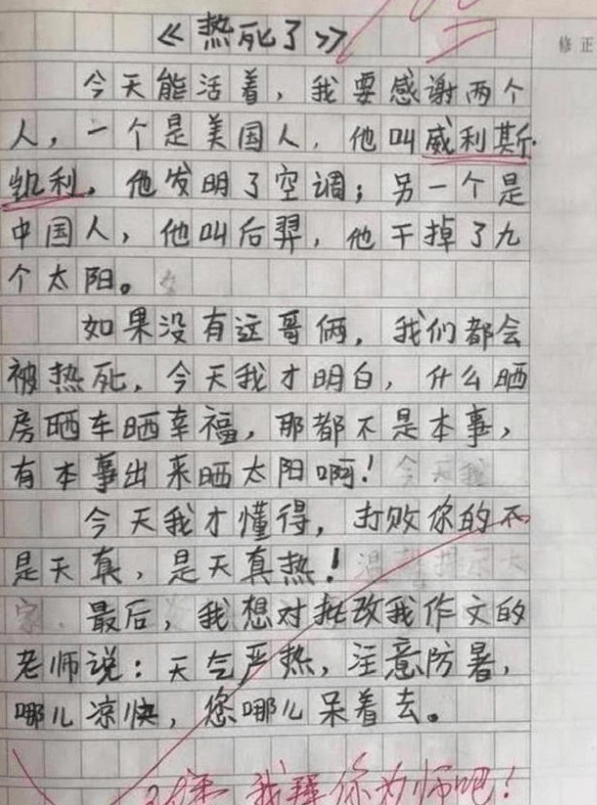 《热死了》
修正
今天能活着，我要感谢两个
人，一个是美国人，他叫威利斯·
凯利，他发明了空调；另一个是
中国人，他叫后羿，他干掉了九
个太阳。
如果没有这哥俩，我们都会
被热死，今天我才明白，什么晒
房晒车晒幸福，那都不是本事，
有本事出来晒太阳啊！今天我
今天我才懂得，打败你的不
是天真，是天真热！温馨提示大
家．最后，我想对批改我作文的
老师说：天气严热，注意防暑，
哪儿凉快，您哪儿呆着去。
我拜你为师吧！